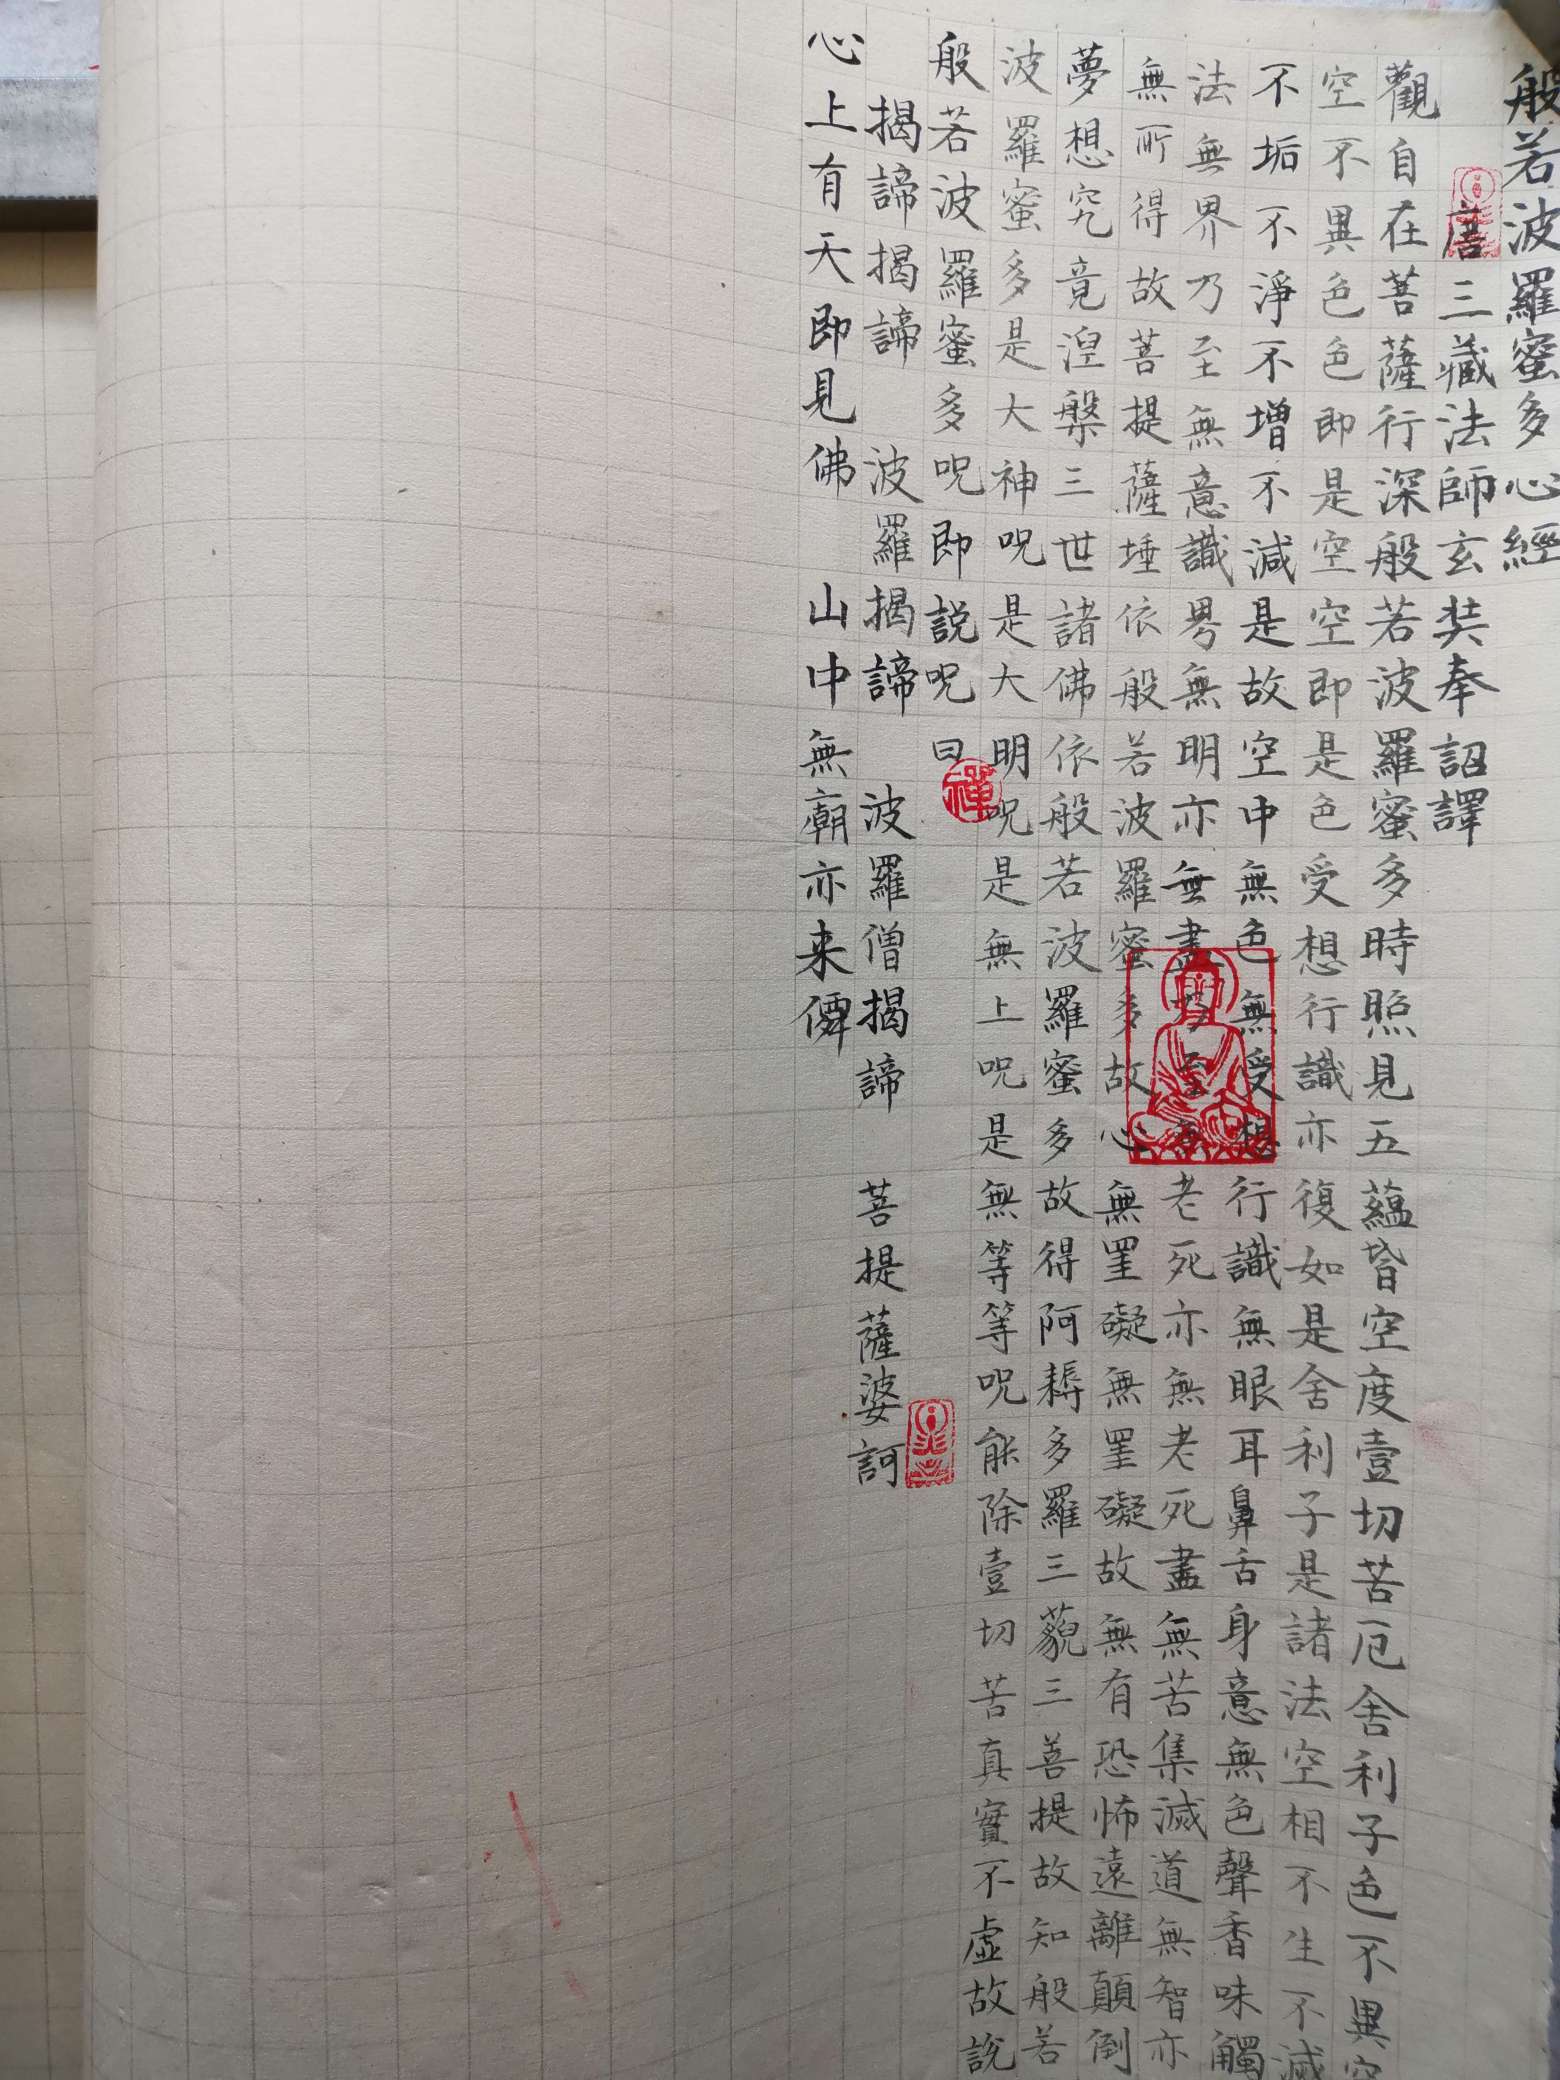 般若波羅蜜多心經
唐三藏法師玄奘奉詔譯
觀自在菩薩行深般若波羅蜜多時照見五蘊皆空度壹切苦厄舍利子色不異空
空不異色色即是空空即是色受想行識亦復如是舍利子是諸法空相不生不滅
不垢不淨不增不減是故空中無色無受想行識無眼耳鼻舌身意無色聲香味觸
法無界乃至無意識界無明亦無盡乃至無老死亦無老死盡無苦集滅道無智亦
無所得故菩提薩埵依般若波羅蜜多故心無罣礙無罣礙故無有恐怖遠離顛倒
夢想究竟涅槃三世諸佛依般若波羅蜜多故得阿耨多羅三藐三菩提故知般若
波羅蜜多是大神呪是大明呪是無上呪是無等等呪能除壹切苦真實不虛故說
般若波羅蜜多呪即說呪曰
禪
揭諦揭諦 波羅揭諦 波羅僧揭諦 菩提薩婆訶
心上有天即見佛 山中無廟亦来僊